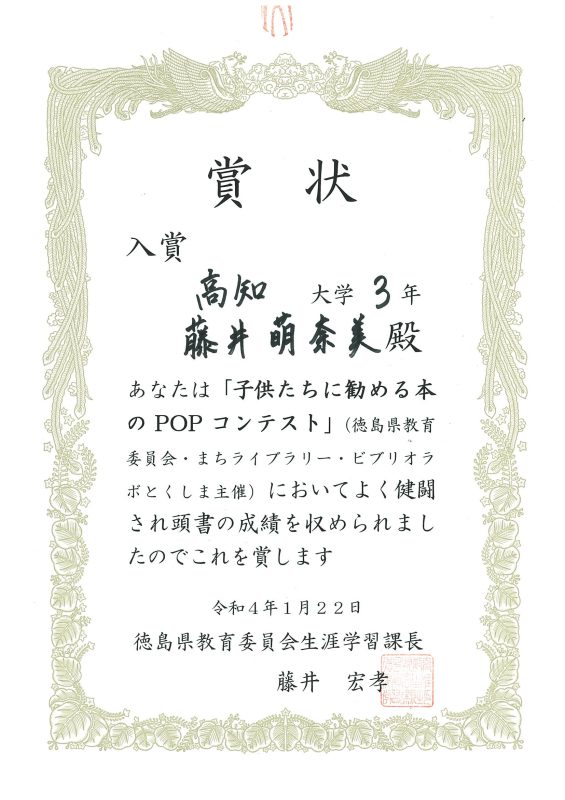 賞状
入賞
高知 大学 3 年
藤井萌奈美殿
あなたは「子供たちに勧める本
の POP コンテスト」（徳島県教育
委員会・まちライブラリー・ビブリオラ
ボとくしま主催）においてよく健闘
され頭書の成績を収められまし
たのでこれを賞します
令和４年１月２２日
徳島県教育委員会生涯学習課長
藤井 宏孝